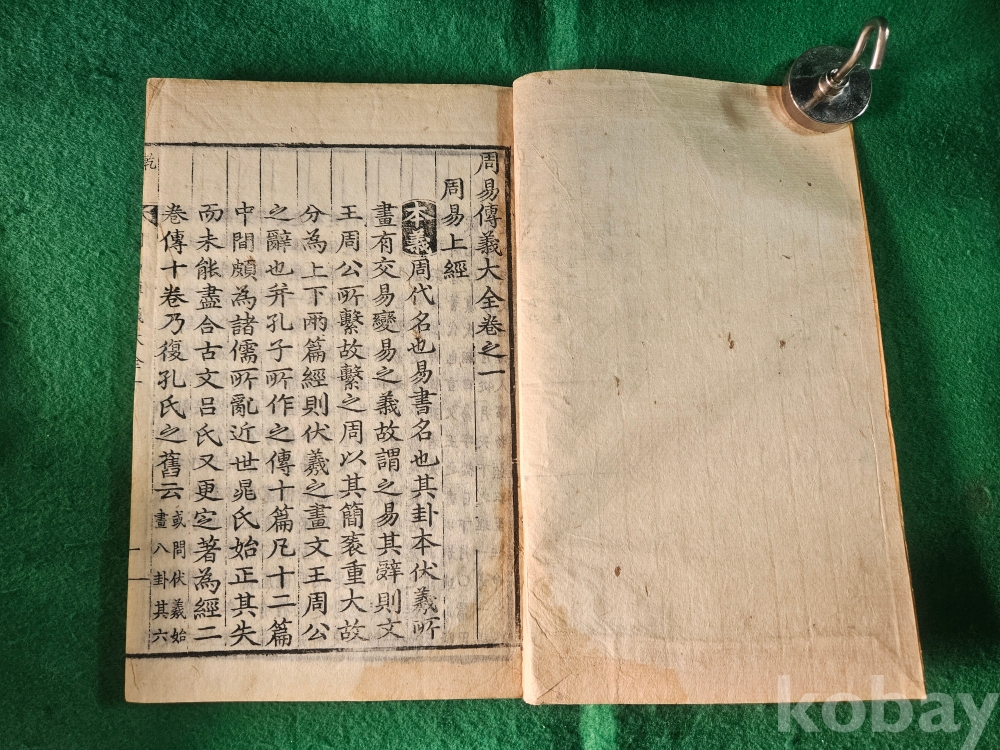 周易傳義大全卷之一
周易上經
本義周代名也易書名也其卦本伏羲所
畫有交易變易之義故謂之易其辭則文
王周公所繫故繫之周以其簡袠重大故
分為上下兩篇經則伏羲之畫文王周公
之辭也并孔子所作之傳十篇凡十二篇
中間頗為諸儒所亂近世晁氏始正其失
而未能盡合古文呂氏又更定著為經二
卷傳十卷乃復孔氏之舊云
或問伏羲始
畫八卦其六
乾
kobay